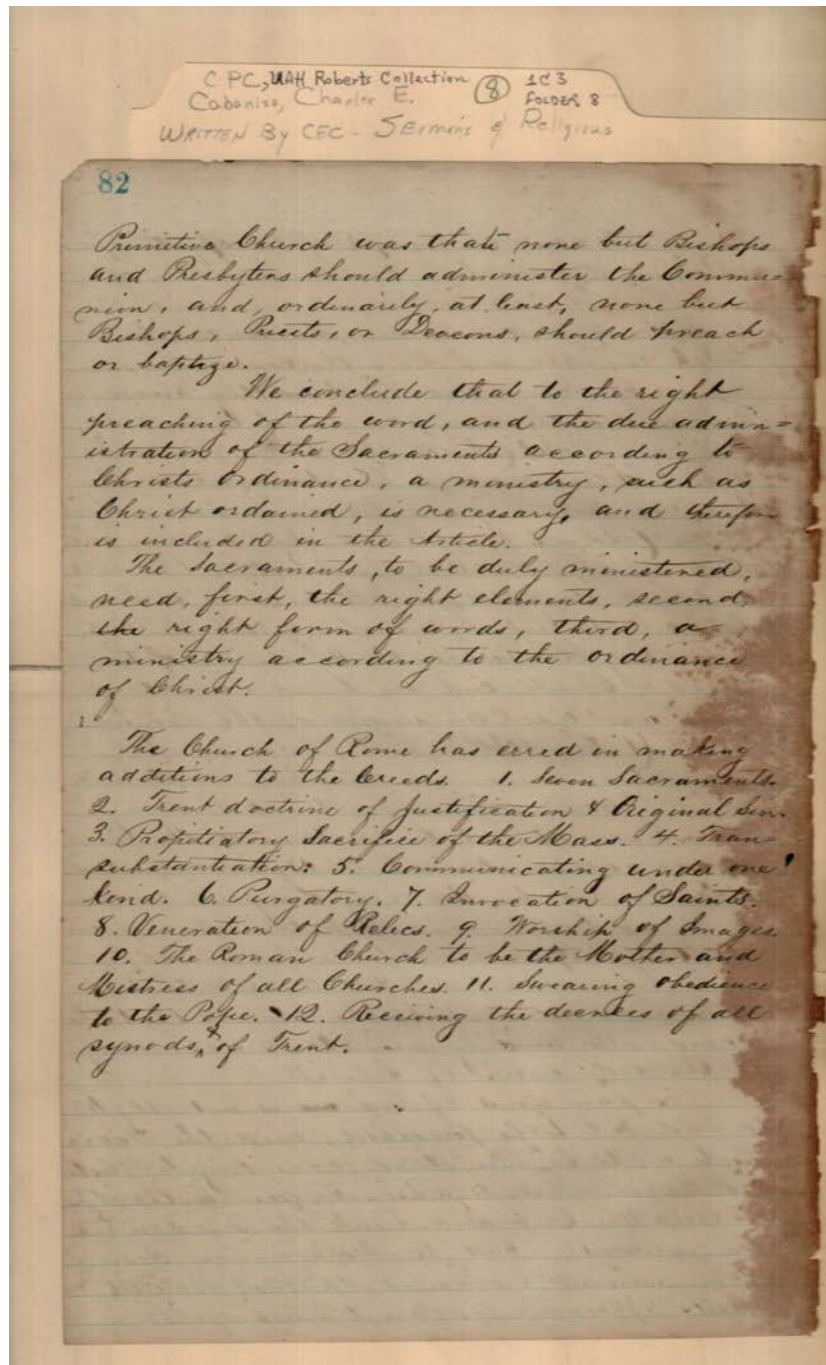 CPC, UAH Roberts Collection 8 1C3
Cabaniss, Charles E. FOLDER 8
WRITTEN By CEC - Sermins & Religious
82
Primitive Church was that none but Bishops
and Presbyters should administer the Commu=
nion, and, ordinarily, at least, none but
Bishops, Priests, or Deacons, should preach
or baptize.
We conclude that to the right
preaching of the word, and the due admin=
istration of the Sacraments according to
Christs ordinance, a ministry, such as
Christ ordained, is necessary, and therefore
is included in the Article.
The Sacraments, to be duly ministered,
need, first, the right elements, second,
the right form of words, third, a
ministry according to the ordinance
of Christ.
The Church of Rome has erred in making
additions to the Creeds. 1. Seven Sacraments.
2. Trent doctrine of Justification & Original Sin.
3. Propitiatory Sacrifice of the Mass. 4. Tran=
substantiation: 5. Communicating under one
kind. 6. Purgatory. 7. Invocation of Saints.
8. Veneration of Relics. 9. Worship of Images.
10. The Roman Church to be the Mother and
Mistress of all Churches. 11. Swearing obedience
to the Pope. 12. Receiving the decrees of all
synods, & of Trent.